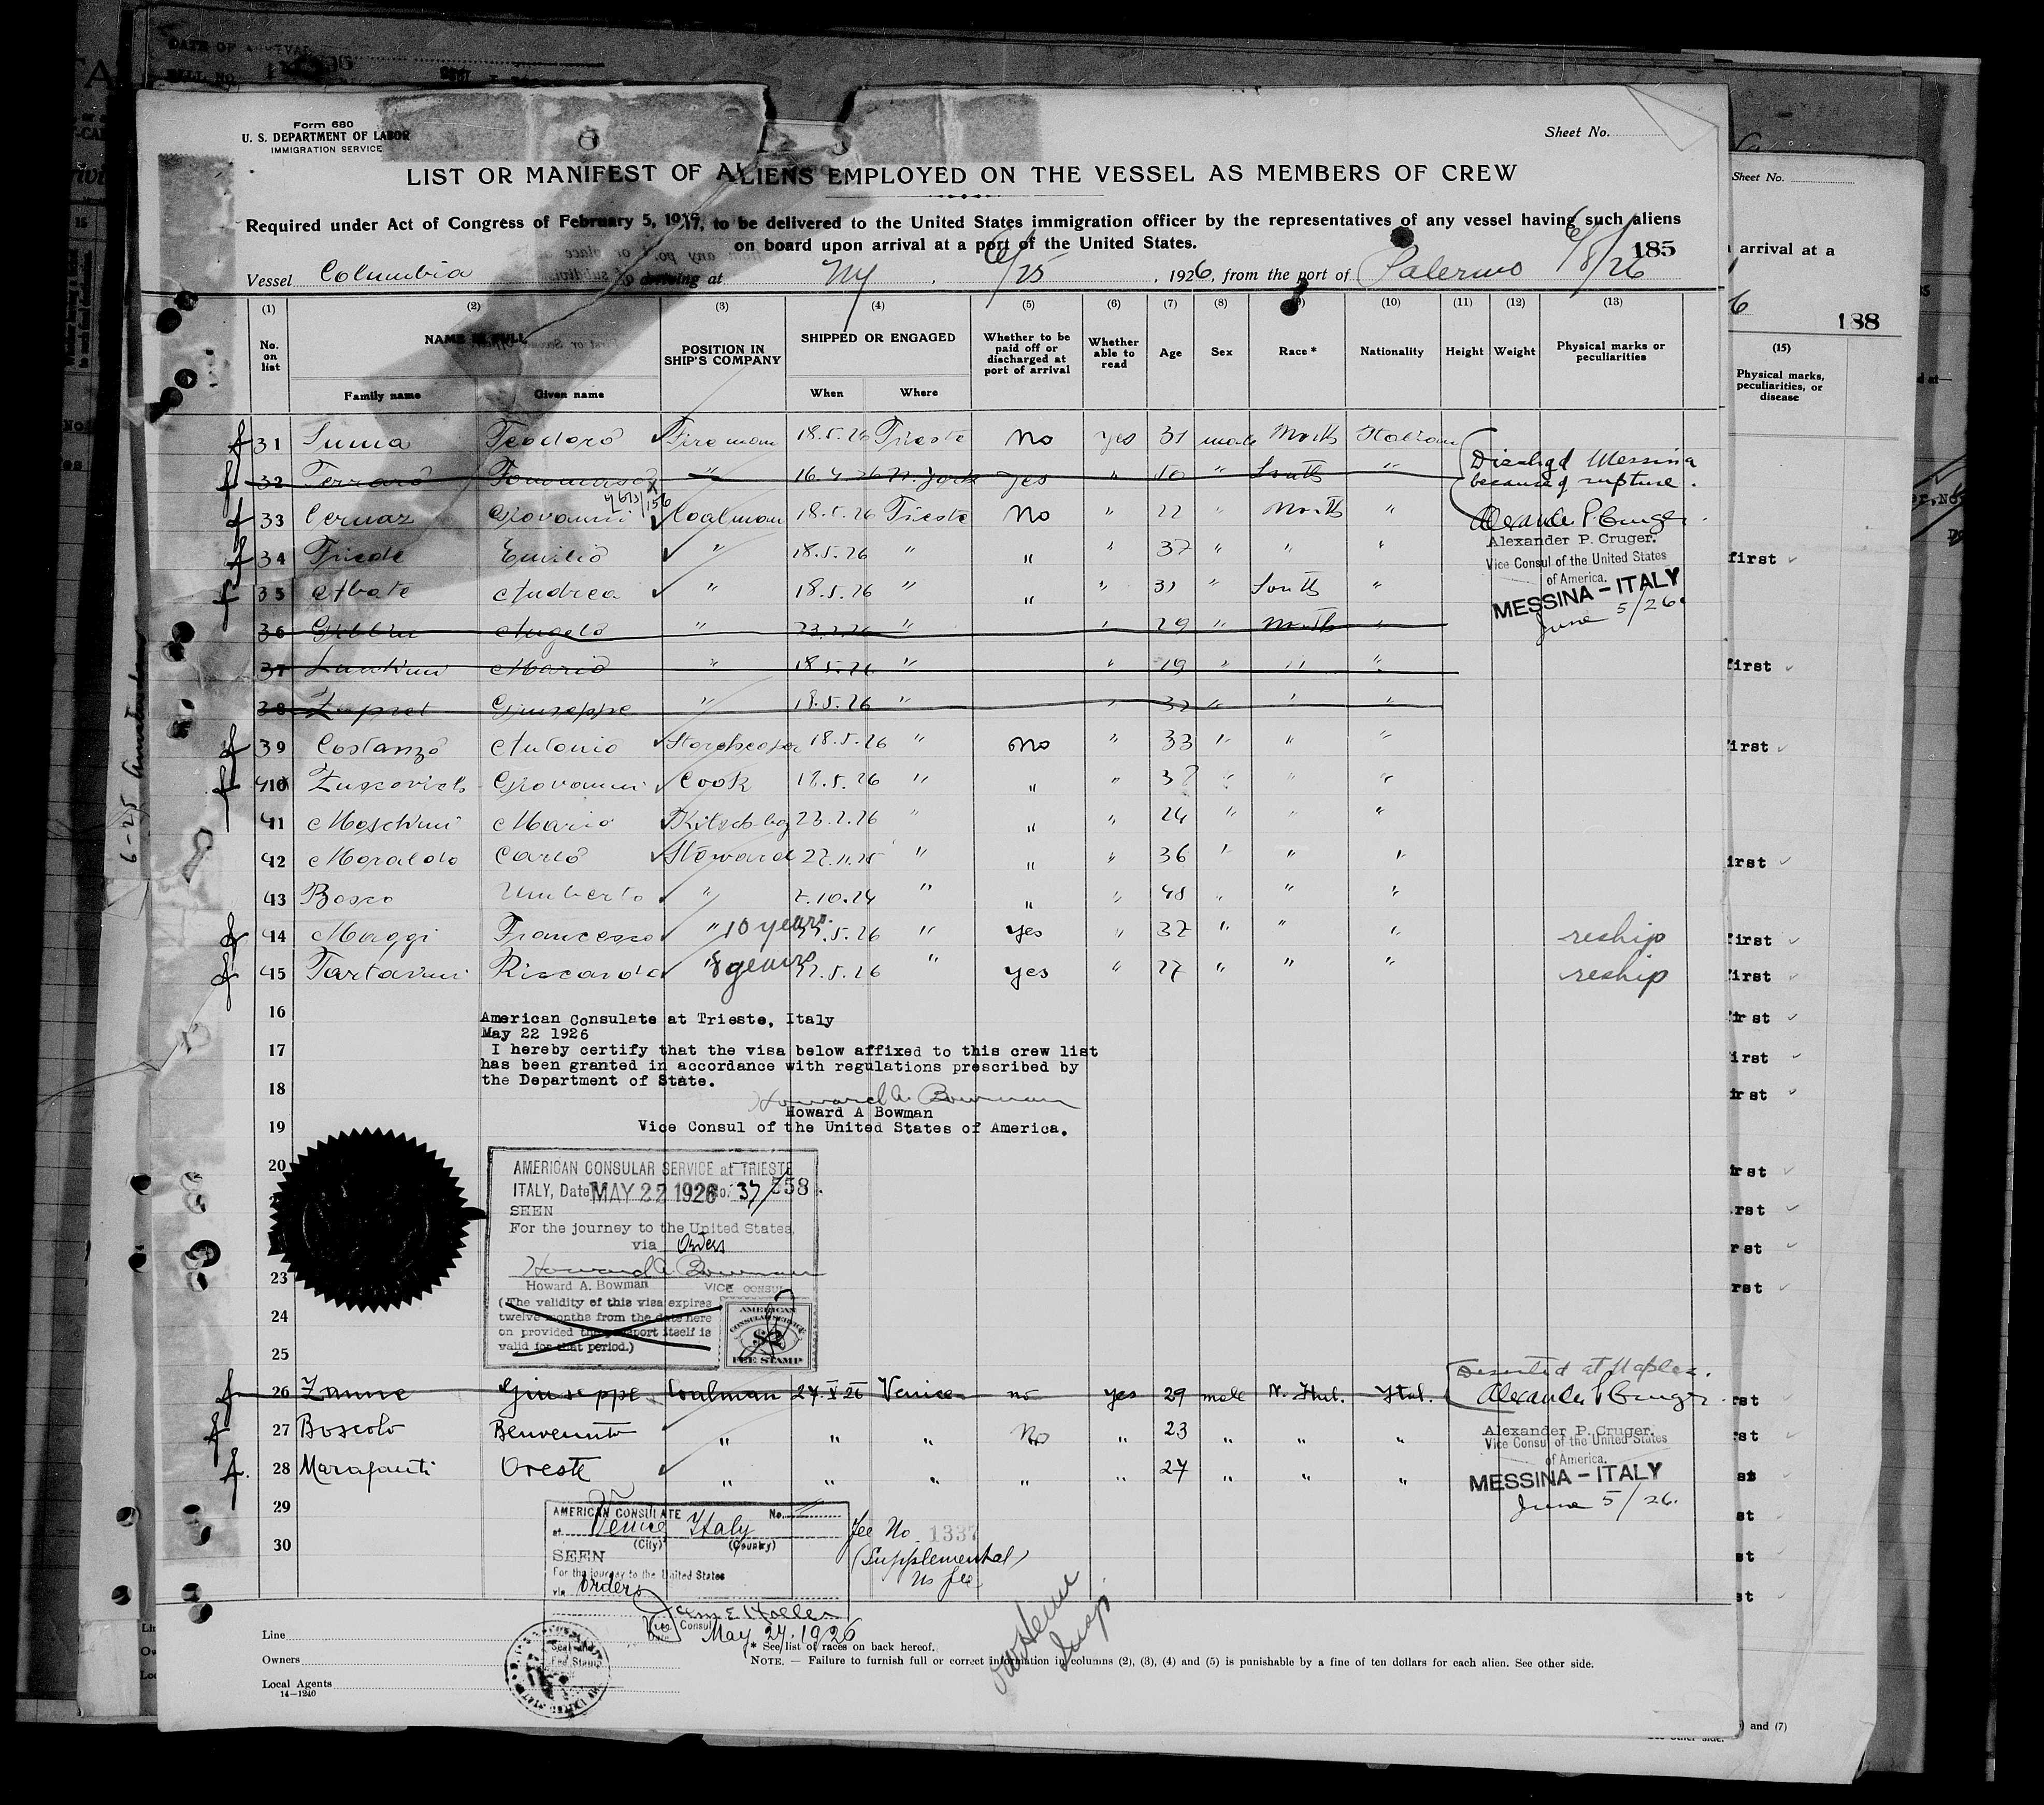 DATE OF ARRIVAL
Form 680
U. S. DEPARTMENT OF LABOR
IMMIGRATION SERVICE
Sheet No.
LIST OR MANIFEST OF ALIENS EMPLOYED ON THE VESSEL AS MEMBERS OF CREW
Required under Act of Congress of February 5, 1917, to be delivered to the United States immigration officer by the representatives of any vessel having such aliens
on board upon arrival at a port of the United States.
185
Vessel Columbia arriving at NY 6/25, 1926, from the port of Palermo 6/8/26
(1) (2) (3) (4) (5) (6) (7) (8) (9) (10) (11) (12) (13)
No. on list NAME IN FULL POSITION IN SHIP'S COMPANY SHIPPED OR ENGAGED Whether to be paid off or discharged at port of arrival Whether able to read Age Sex Race * Nationality Height Weight Physical marks or peculiarities
Family name Given name When Where
31 Suma Teodoro Fireman 18.5.26 Trieste No yes 31 male North Italian
32 Ferraro Tommaso " 16.4.26 N. York yes " 50 " South "
33 Cernaz Giovanni Coalman 18.5.26 Trieste No " 22 " North "
34 Friede Emilio " 18.5.26 " " " 37 " " "
35 Abate Andrea " 18.5.26 " " " 31 " South "
36 Angelo " 23.2.26 " " 29 " North "
37 Mario " 18.5.26 " " 19 " " "
38 Giuseppe " 18.5.26 " " " " "
39 Costanzo Antonio Storekeeper 18.5.26 " No " 33 " " "
40 Zuscovich Giovanni Cook 18.5.26 " " " " " "
41 Moschini Mario Kitch boy 23.2.26 " " " 24 " " "
42 Moraldo Carlo Steward 27.11.25 " " " 36 " " "
43 Bosco Umberto " 2.10.24 " " " 48 " " "
44 Maggi Francesco " 10 years 22.5.26 " yes " 37 " " " reship
45 Tartarini Riccardo " 8 years 22.5.26 " yes " 27 " " " reship
Dischgd Messina
because of rupture.
Alexander P. Cruger
Alexander P. Cruger.
Vice Consul of the United States
of America.
MESSINA - ITALY
June 5/26.
16
American Consulate at Trieste, Italy
May 22 1926
17
I hereby certify that the visa below affixed to this crew list
has been granted in accordance with regulations prescribed by
the Department of State.
18
Howard A. Bowman
Howard A Bowman
19
Vice Consul of the United States of America.
20
AMERICAN CONSULAR SERVICE at TRIESTE
ITALY, Date MAY 22 1926 No. 37/558.
SEEN
For the journey to the United States,
via Orders
Howard A. Bowman
23
Howard A. Bowman VICE CONSUL
(The validity of this visa expires
twelve months from the date here
on provided the passport itself is
valid for that period.)
AMERICAN
CONSULAR SERVICE
$2
FEE STAMP
24
25
Deserted at Naples.
26 Giuseppe Coalman 27 V 26 Venice no yes 29 male N. Ital. Ital. Alexander P Cruger
27 Boscolo Benvenuto " " " No " 23 " " "
28 Marafanti Oreste " " " " " 27 " " "
Alexander P. Cruger.
Vice Consul of the United States
of America.
MESSINA - ITALY
June 5/26.
29
30
AMERICAN CONSULATE No.
at Venice Italy
(City) (Country)
SEEN
For the journey to the United States
via orders
Vice Consul
May 27. 1926
Fee No 1337
(Supplemental)
no fee
Insp
Line
Owners
Local Agents
14—1240
* See list of races on back hereof.
NOTE. — Failure to furnish full or correct information in columns (2), (3), (4) and (5) is punishable by a fine of ten dollars for each alien. See other side.
6-25
Sheet No.
arrival at a
188
(15)
Physical marks, peculiarities, or disease
first
first
first
and (7)